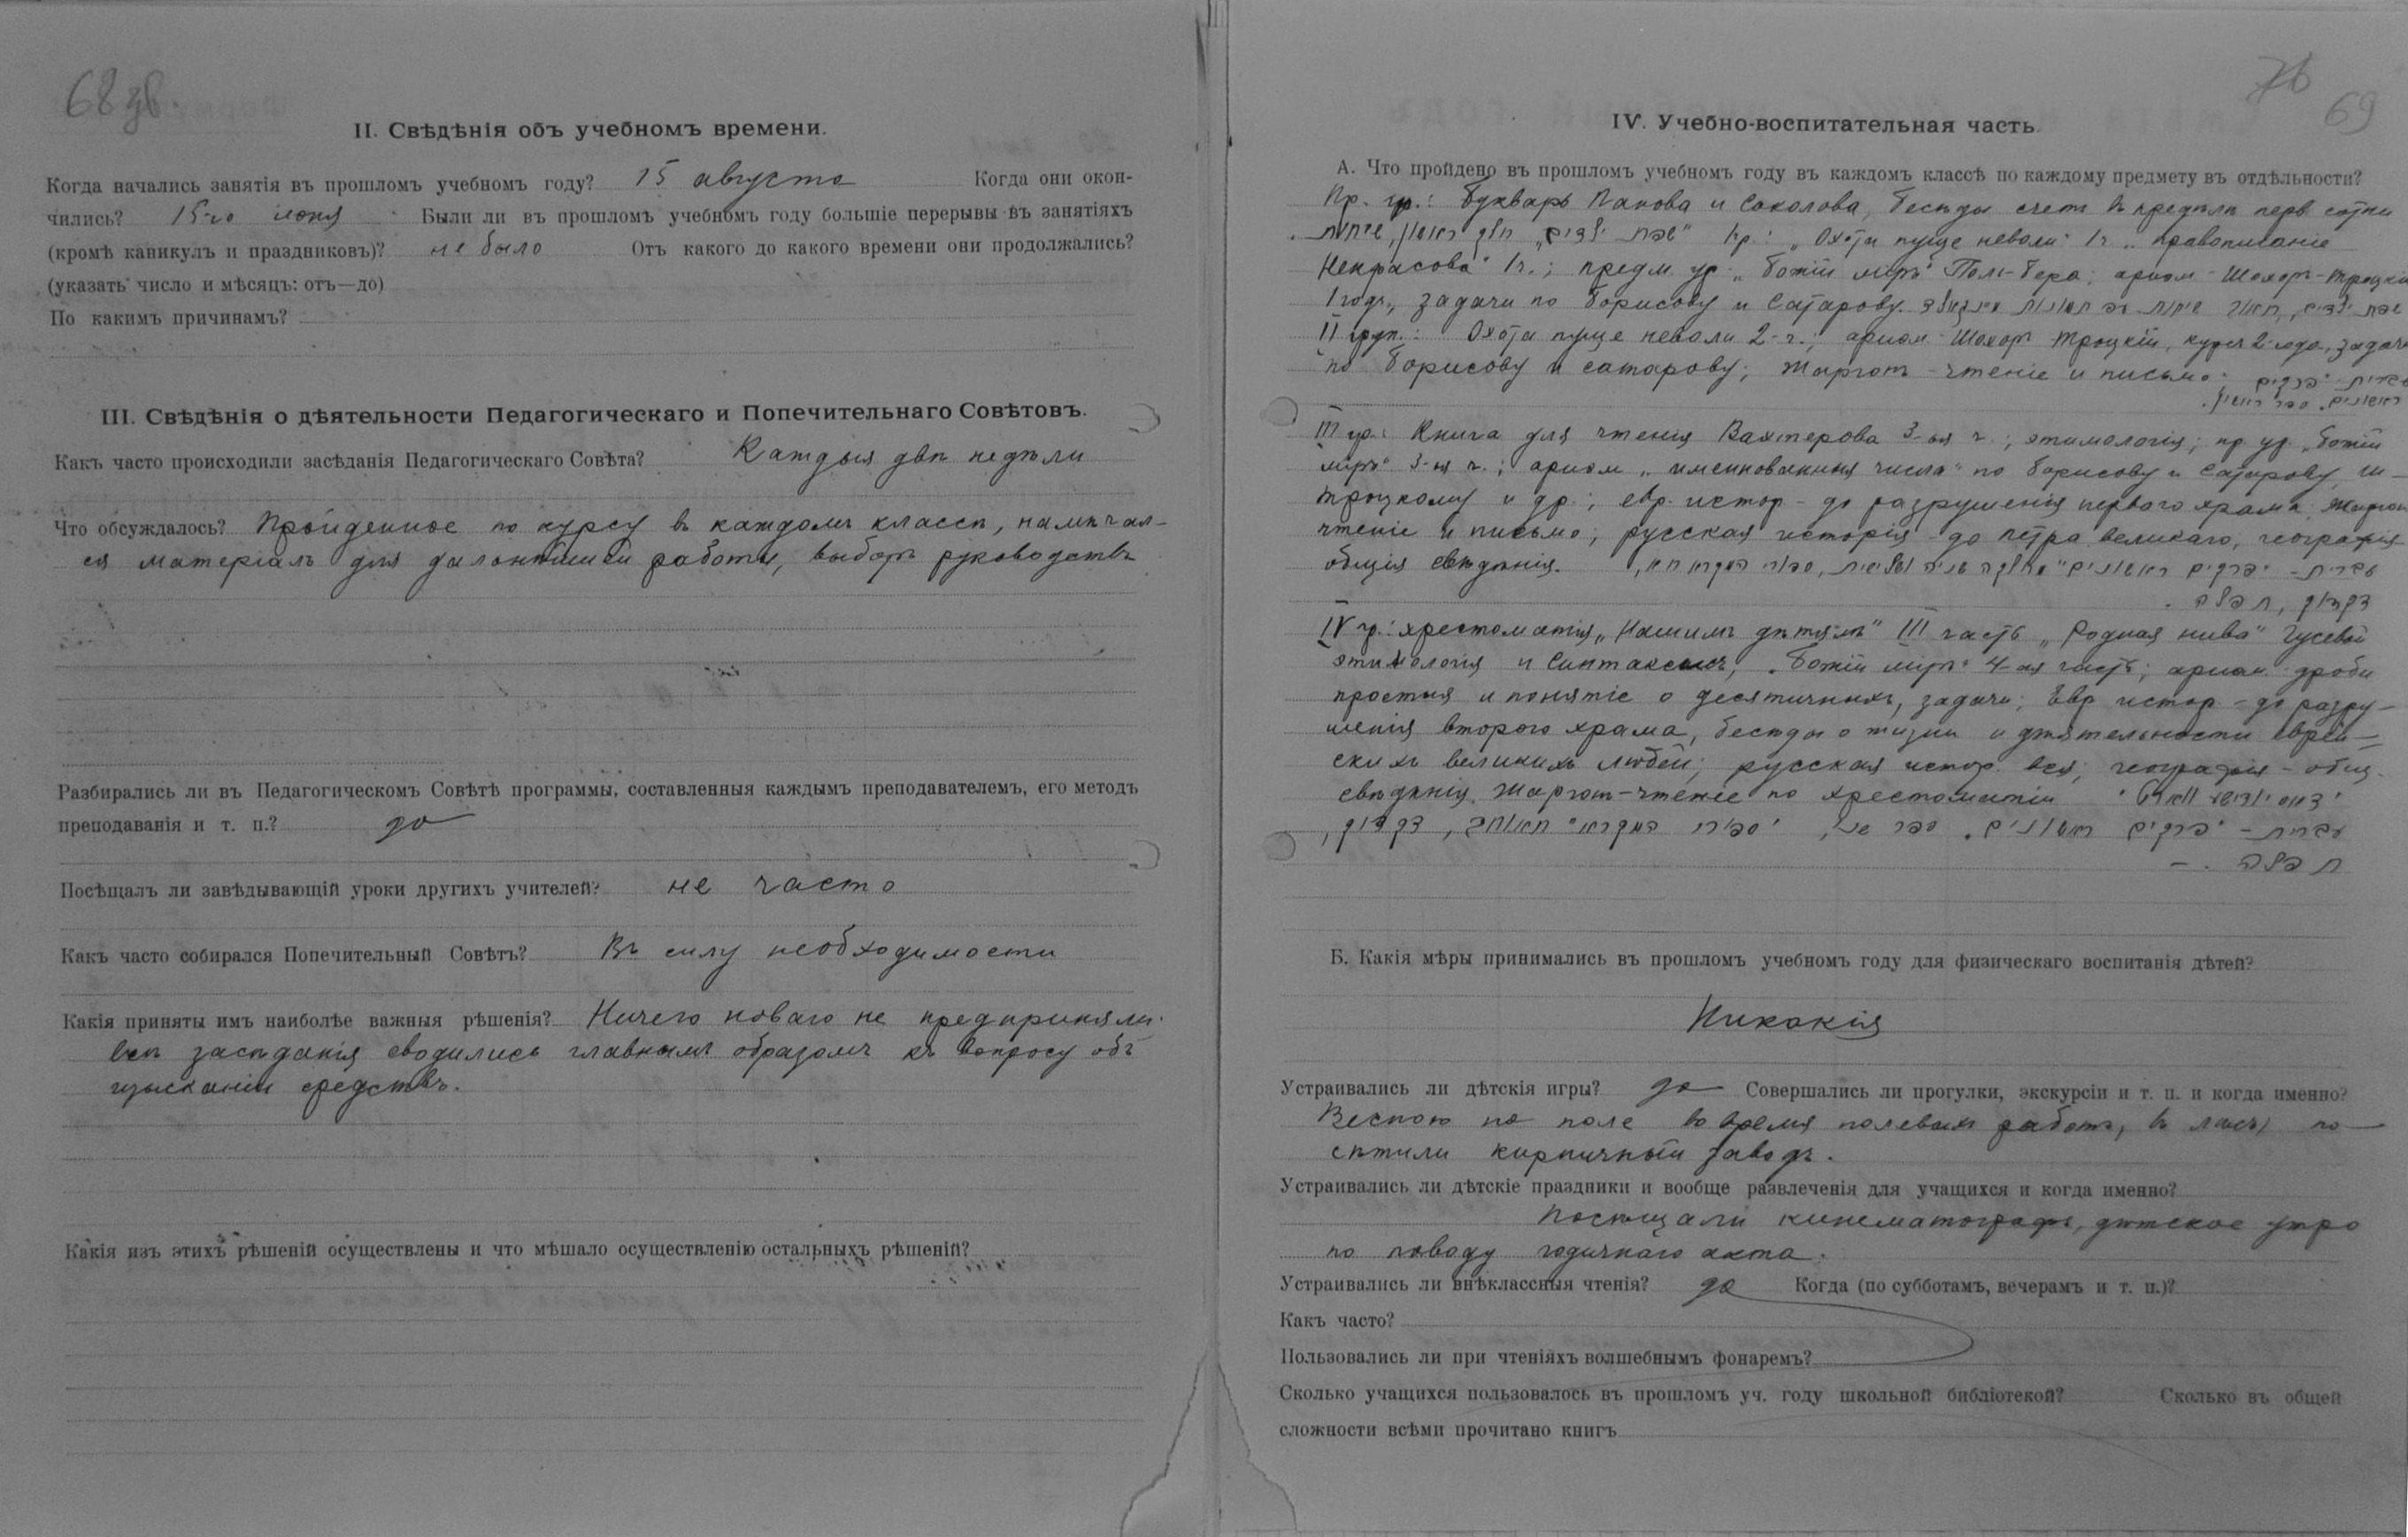 68 зв.
II. Свѣдѣнія объ учебномъ времени.
Когда начались занятія въ прошломъ учебномъ году? 15 августа Когда они окон-
чились? 15-го іюня Были ли въ прошломъ учебномъ году большіе перерывы въ занятіяхъ
(кромѣ каникулъ и праздниковъ)? не было Отъ какого до какого времени они продолжались?
(указать число и мѣсяцъ: отъ—до)
По какимъ причинамъ?
III. Свѣдѣнія о дѣятельности Педагогическаго и Попечительнаго Совѣтовъ.
Какъ часто происходили засѣданія Педагогическаго Совѣта? Каждыя двѣ недѣли
Что обсуждалось? Пройденное по курсу въ каждомъ классѣ, намѣчал-
ся матеріалъ для дальнѣйшей работы, выборъ руководствъ
Разбирались ли въ Педагогическомъ Совѣтѣ программы, составленныя каждымъ преподавателемъ, его методъ
преподаванія и т. п.? да
Посѣщалъ ли завѣдывающій уроки другихъ учителей? не часто
Какъ часто собирался Попечительный Совѣтъ? Въ силу необходимости
Какія приняты имъ наиболѣе важныя рѣшенія? Ничего новаго не предприняли.
всѣ засѣданія сводились главнымъ образомъ къ вопросу объ
изысканіи средствъ.
Какія изъ этихъ рѣшеній осуществлены и что мѣшало осуществленію остальныхъ рѣшеній?
76
69
IV. Учебно-воспитательная часть.
А. Что пройдено въ прошломъ учебномъ году въ каждомъ классѣ по каждому предмету въ отдѣльности?
Пр. гр.: Букварь Панова и Соколова, бесѣды счетъ въ предѣлѣ перв. сотни
I гр.: „Охота пуще неволи" I ч. „правописаніе
Некрасова" I ч.; предм. ур. „Божій міръ" Поль-Бера; ариѳм. Шохоръ-Троцкій
I годъ, задачи по Борисову и Сатарову.
II груп.: Охота пуще неволи 2-ч.; ариѳм. Шохоръ Троцкій, курсъ 2 года, задачи
по Борисову и Сатарову; жаргонъ - чтеніе и письмо;
III гр.: Книга для чтенія Вахтерова 3-ья ч.; этимологія; пр. ур. „Божій
міръ" 3-ья ч.; ариѳм. „именнованныя числа" по Борисову и Сатарову, Ш-
Троцкому и др.; евр. истор. - до разрушенія перваго храма, жаргонъ
чтеніе и письмо, русская исторія - до Петра великаго, географія
общія свѣдѣнія. עברית - פרקים ראשונים
דקדוק, תפלה.
IV гр.: хрестоматія „Нашимъ дѣтямъ" III часть „Родная нива" Гусевой
этимологія и синтаксисъ, „Божій міръ" 4-ая часть; ариѳм. дроби
простыя и понятіе о десятичныхъ, задачи; Евр. истор. - до разру-
шенія второго храма, бесѣды о жизни и дѣятельности еврей-
скихъ великихъ людей; русская истор. вся; географія - общ.
свѣдѣнія. Жаргонъ - чтеніе по хрестоматіи
עברית - פרקים ראשונים, דקדוק,
תפלה. -
Б. Какія мѣры принимались въ прошломъ учебномъ году для физическаго воспитанія дѣтей?
Никакія
Устраивались ли дѣтскія игры? да Совершались ли прогулки, экскурсіи и т. п. и когда именно?
Весною на поле во время полевыхъ работъ, въ лѣсъ, по-
сѣтили кирпичный заводъ.
Устраивались ли дѣтскіе праздники и вообще развлеченія для учащихся и когда именно?
Посѣщали кинематографъ, дѣтское утро
по поводу годичнаго акта.
Устраивались ли внѣклассныя чтенія? да Когда (по субботамъ, вечерамъ и т. п.)?
Какъ часто?
Пользовались ли при чтеніяхъ волшебнымъ фонаремъ?
Сколько учащихся пользовалось въ прошломъ уч. году школьной библіотекой? Сколько въ общей
сложности всѣми прочитано книгъ